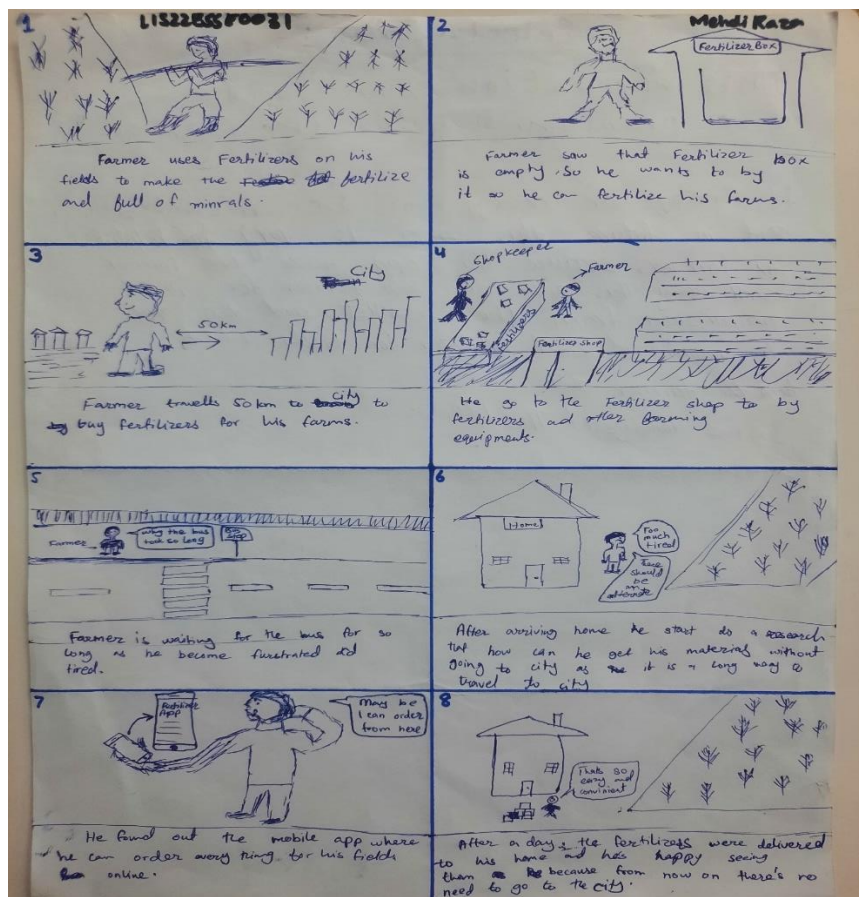 1
L1S22BSSE0031
Farmer uses Fertilizers on his
fields to make the fertilize
and full of minrals.
2
Mehdi Raza
Fertilizer Box
Farmer saw that Fertilizer box
is empty. So he wants to by
it so he can fertilize his farms.
3
City
50km
Farmer travells 50 km to city to
buy fertilizers for his farms.
4
Shopkeeper
Farmer
Fertilizers
Fertilizer Shop
He go to the Fertilizer shop to by
fertilizers ad other farming
equipments.
5
Farmer
why the bus
took so long
Bus
stop
Farmer is waiting for the bus for so
long as he become furstrated ad
tired.
6
Home
Too
much
tired
There
should
be
an
alternate
After arriving home he start do a research
that how can he get his materials without
going to city as it is a long way to
travel to city
7
Fertilizer
App
May be
I can order
from here
He found out the mobile app where
he can order every thing for his fields
online.
8
Thats so
easy and
convinient
After a day, the fertilizers were delivered
to his home and he's happy seeing
them because from now on there's no
need to go to the city.